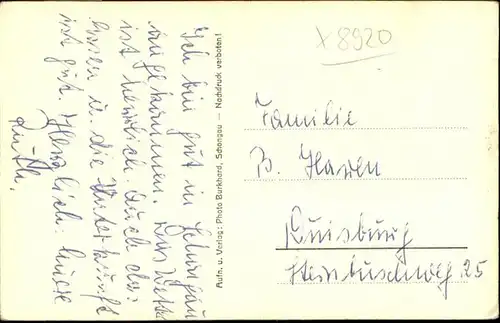 x 8920
Ich bin gut in Schongau
angekommen. Das Wetter
ist herrlich auch das
Essen u. die Unterkunft
ist gut. Herzlich
Ruth.
Aufn. u. Verlag: Photo Burkhardt, Schongau — Nachdruck verboten!
Familie
B. Haren
Duisburg
Steinbuschweg 25